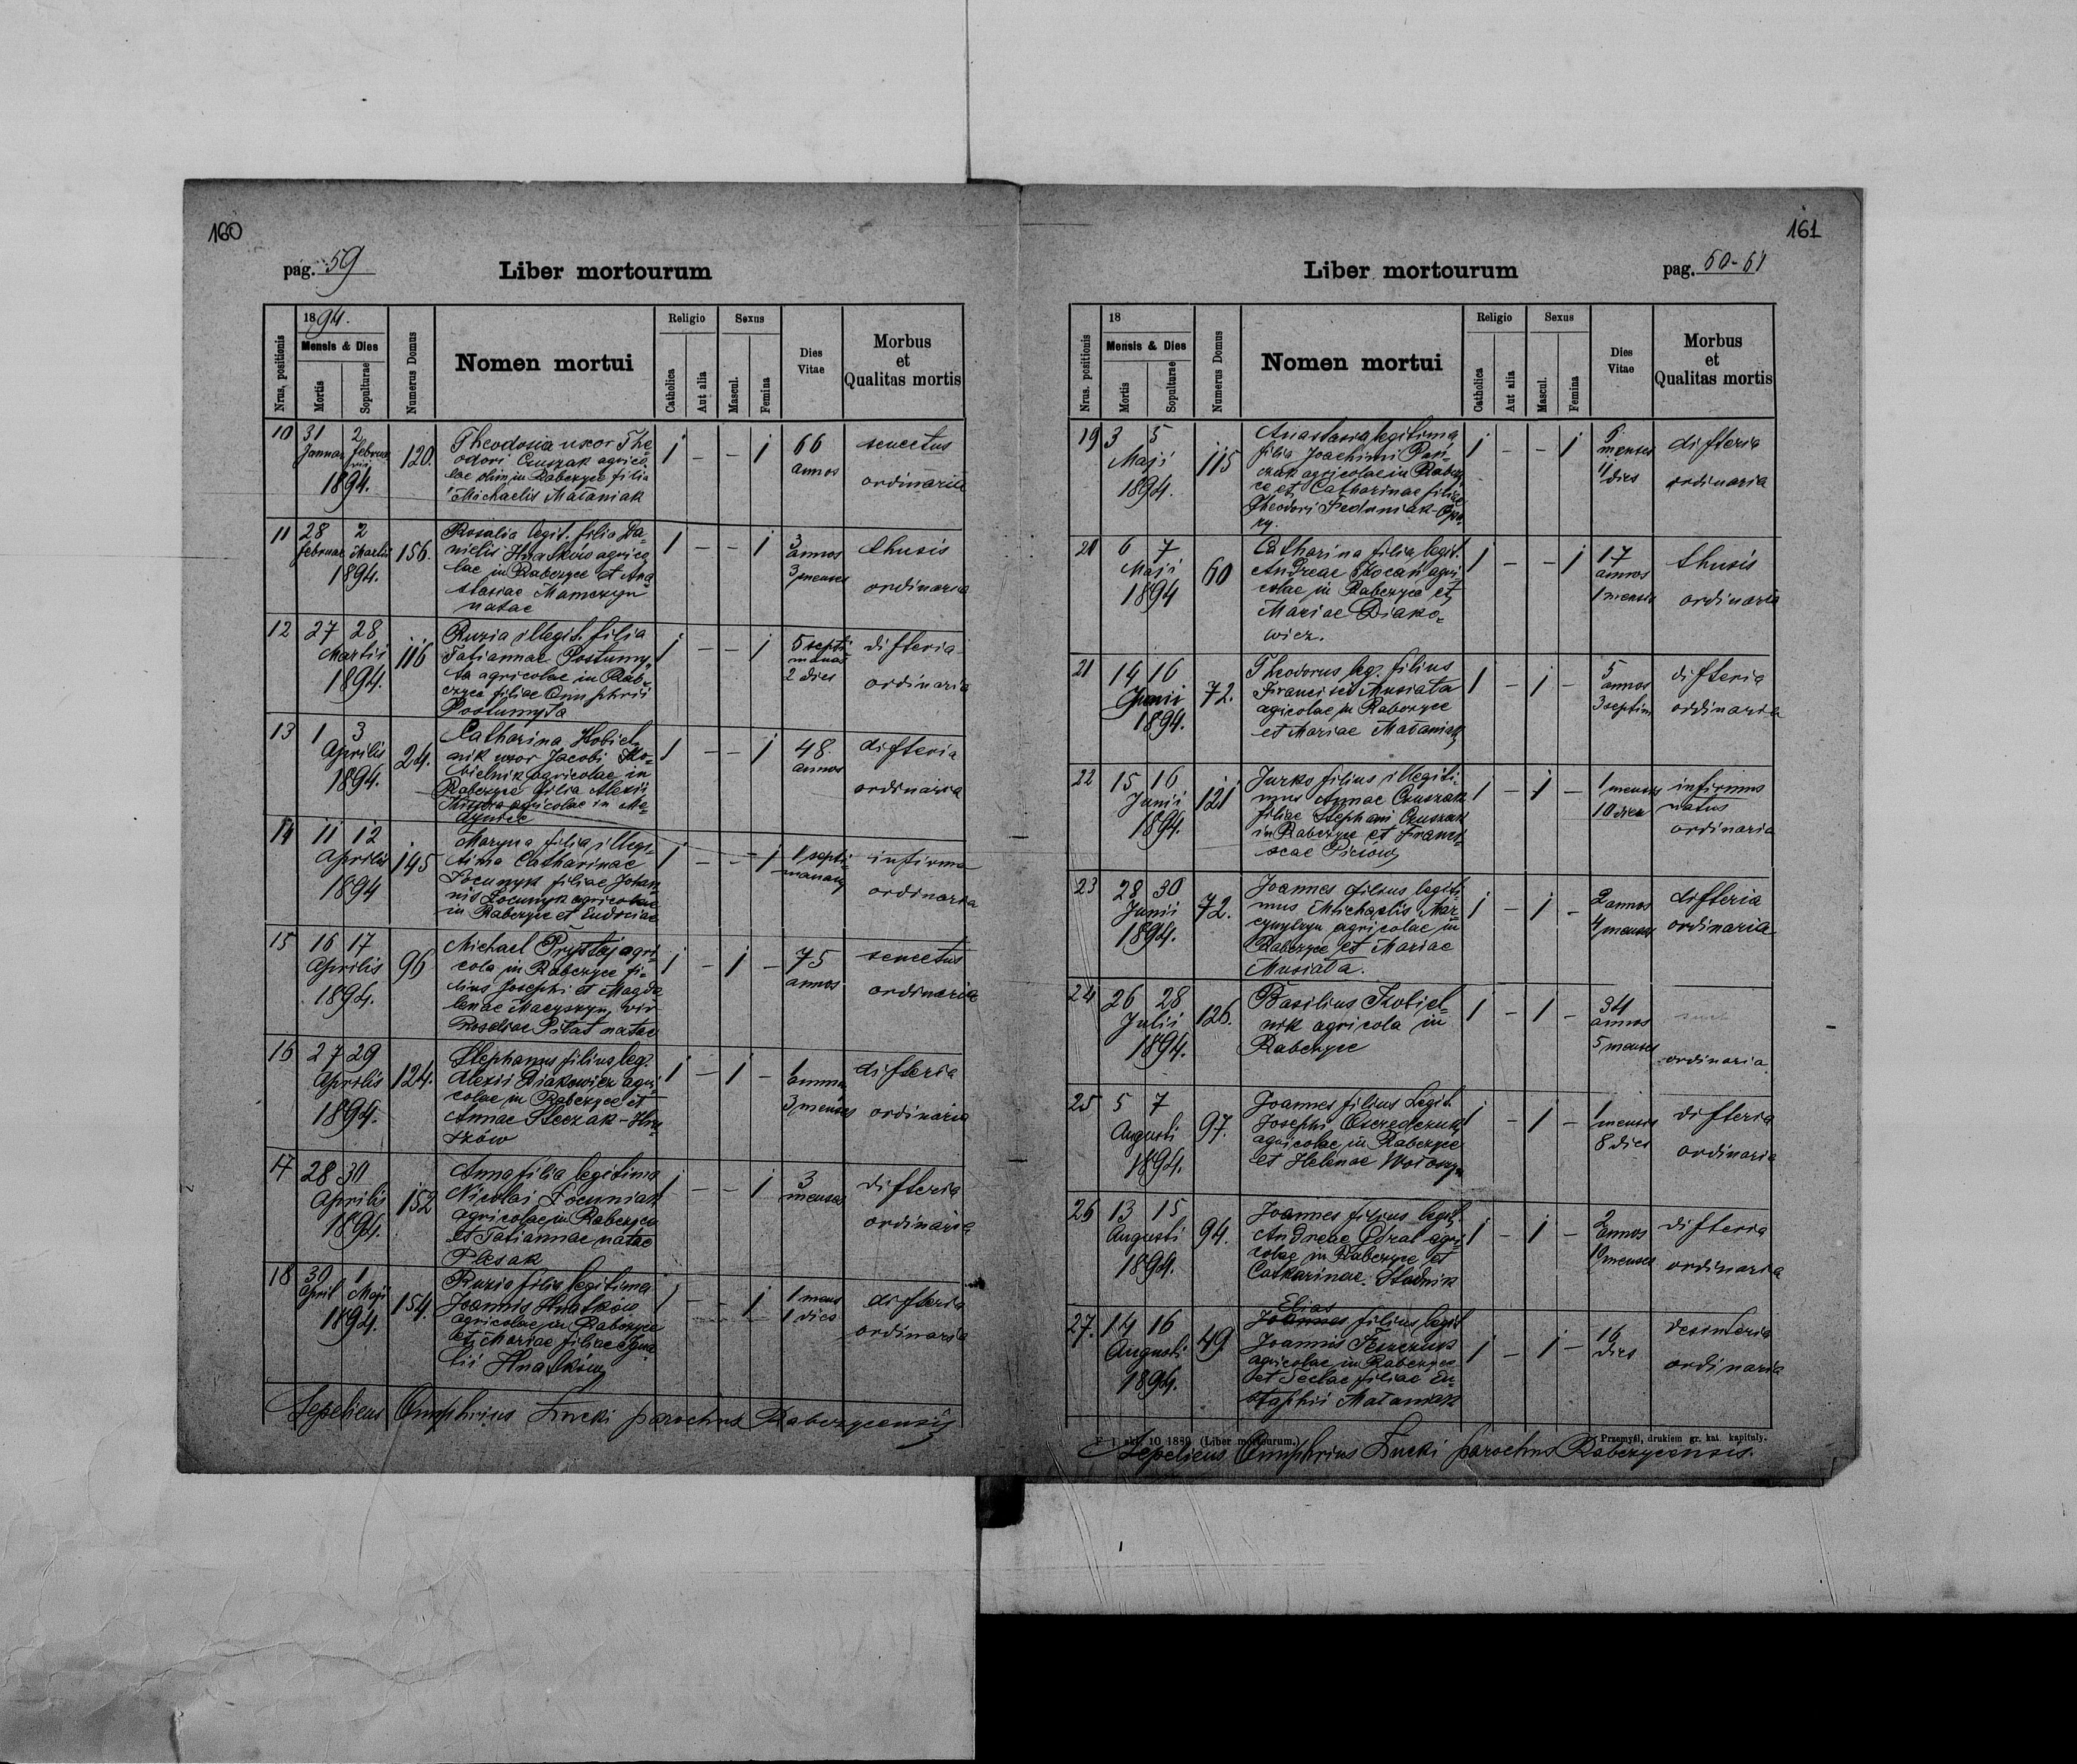 160
pag. 59
Liber mortourum
Nrus. positionis
1894.
Mensis & Dies
Mortis
Sepulturae
Numerus Domus
Nomen mortui
Religio
Catholica
Aut alia
Sexus
Mascul.
Femina
Dies
Vitae
Morbus
et
Qualitas mortis
10 31 2
Januar Februa
rii
1894.
120.
Theodosia uxor The-
odori Czuszak agrico-
lae olim in Rabczyce filia
Michaelis Mataniak
1 - - 1
66
annos
senectus
ordinaria
11 28 2
Februar Martii
1894.
156.
Rosalia legit. filia Da-
nielis Hnatkow agrico
lae in Rabczyce et Ana
stasiae Mamczyn
natae
1 - - 1
3
annos
3 menses
thusis
ordinaria
12 27 28
Martii
1894.
116
Ruzia illegit. filia
Tatiannae Postumy-
ta agricolae in Rab-
czyce filiae Onuphrii
Postumyta
1 - - 1
5 septi
manas
2 dies
difteria
ordinaria
13 1 3
Aprilis
1894.
24.
Catharina Kobiel-
nik uxor Jacobi Ko-
bielnik agricolae in
Rabczyce filia Alexii
agricolae in Me-
dynice
1 - - 1
48
annos
difteria
ordinaria
14 11 12
Aprilis
1894
145
Maryna filia illegi-
tima Catharinae
filiae Johan
nis agricolae
in Rabczyce et Eudociae
1 - - 1
1 septi-
manam
infirma
ordinaria
15 16 17
Aprilis
1894.
96
Michael Prystaj agri-
cola in Rabczyce fi-
lius Josephi et Magda
lenae Maczyszyn, vir
Rosaliae Pitat natae
1 - 1 -
75
annos
senectus
ordinaria
16 27 29
Aprilis
1894.
124.
Stephanus filius leg.
Alexii Diakowicz agri
colae in Rabczyce et
Annae Steczak-Hna-
tków
1 - 1 -
1
annum
3 menses
difteria
ordinaria
17 28 30
Aprilis
1894.
152
Anna filia legitima
Nicolai
agricolae in Rabczyce
et Tatiannae natae
Plesak
1 - - 1
3
menses
difteria
ordinaria
18 30 1
April Maji
1894.
154.
Ruzia filia legitima
Joannis Hnatkow
agricolae in Rabczyce
et Mariae filiae Igna
tii Hnatków
1 - - 1
1 mens
1 dies
difteria
ordinaria
Sepeliens Onuphrius Łucki parochus Rabczycensis
161
Liber mortourum
pag. 60-61
Nrus. positionis
18
Mensis & Dies
Mortis
Sepulturae
Numerus Domus
Nomen mortui
Religio
Catholica
Aut alia
Sexus
Mascul.
Femina
Dies
Vitae
Morbus
et
Qualitas mortis
19 3 5
Maji
1894.
115
Anastasia legitima
filia Joachimi
agricolae in Rabczy
ce et Catharinae filiae
Theodori Feduniak-
1 - - 1
menses
11 dies
difteria
ordinaria
20 6 7
Maji
1894
60
Catharina filia legit.
Andreae Kocan agri-
colae in Rabczyce et
Mariae Diako-
wicz.
1 - - 1
17
annos
1 mensis
thusis
ordinaria
21 14 16
Junii
1894.
72.
Theodorus leg. filius
Francisci Musiata
agricolae in Rabczyce
et Mariae Mataniak
1 - 1 -
5
annos
3 septim
difteria
ordinaria
22 15 16
Junii
1894.
121
Jurko filius illegiti-
mus Annae Czuszak
filiae Stephani Czuszak
in Rabczyce et Franci-
scae
1 - 1 -
1 mensis
10 dies
infirmus
natus
ordinaria
23 28 30
Junii
1894.
72.
Joannes filius legiti-
mus Michaelis
agricolae in
Rabczyce et Mariae
Musiata.
1 - 1 -
2 annos
4 menses
difteria
ordinaria
24 26 28
Julii
1894.
126.
Basilius Kobiel-
nik agricola in
Rabczyce
1 - 1 -
34
annos
5 menses
ordinaria.
25 5 7
Augusti
1894.
97.
Joannes filius legit.
Josephi Oseredczuk
agricolae in Rabczyce
et Helenae Wołoszyn
1 - 1 -
1
mensis
8 dies
difteria
ordinaria
26 13 15
Augusti
1894.
94.
Joannes filius legit.
Andreae agri-
colae in Rabczyce et
Catharinae Stadnik
1 - 1 -
2
annos
menses
difteria
ordinaria
27. 14 16
Augusti
1894.
49.
Elias
Joannes filius legit
Joannis Feszczuk
agricolae in Rabczyce
et Teclae filiae Eu-
staphii Mataniak
1 - 1 -
16
dies
desinteria
ordinaria
F. I. skł. 10 1889 (Liber mortourum.)
Przemyśl, drukiem gr. kat. kapituły.
Sepeliens Onuphrius Łucki parochus Rabczycensis.